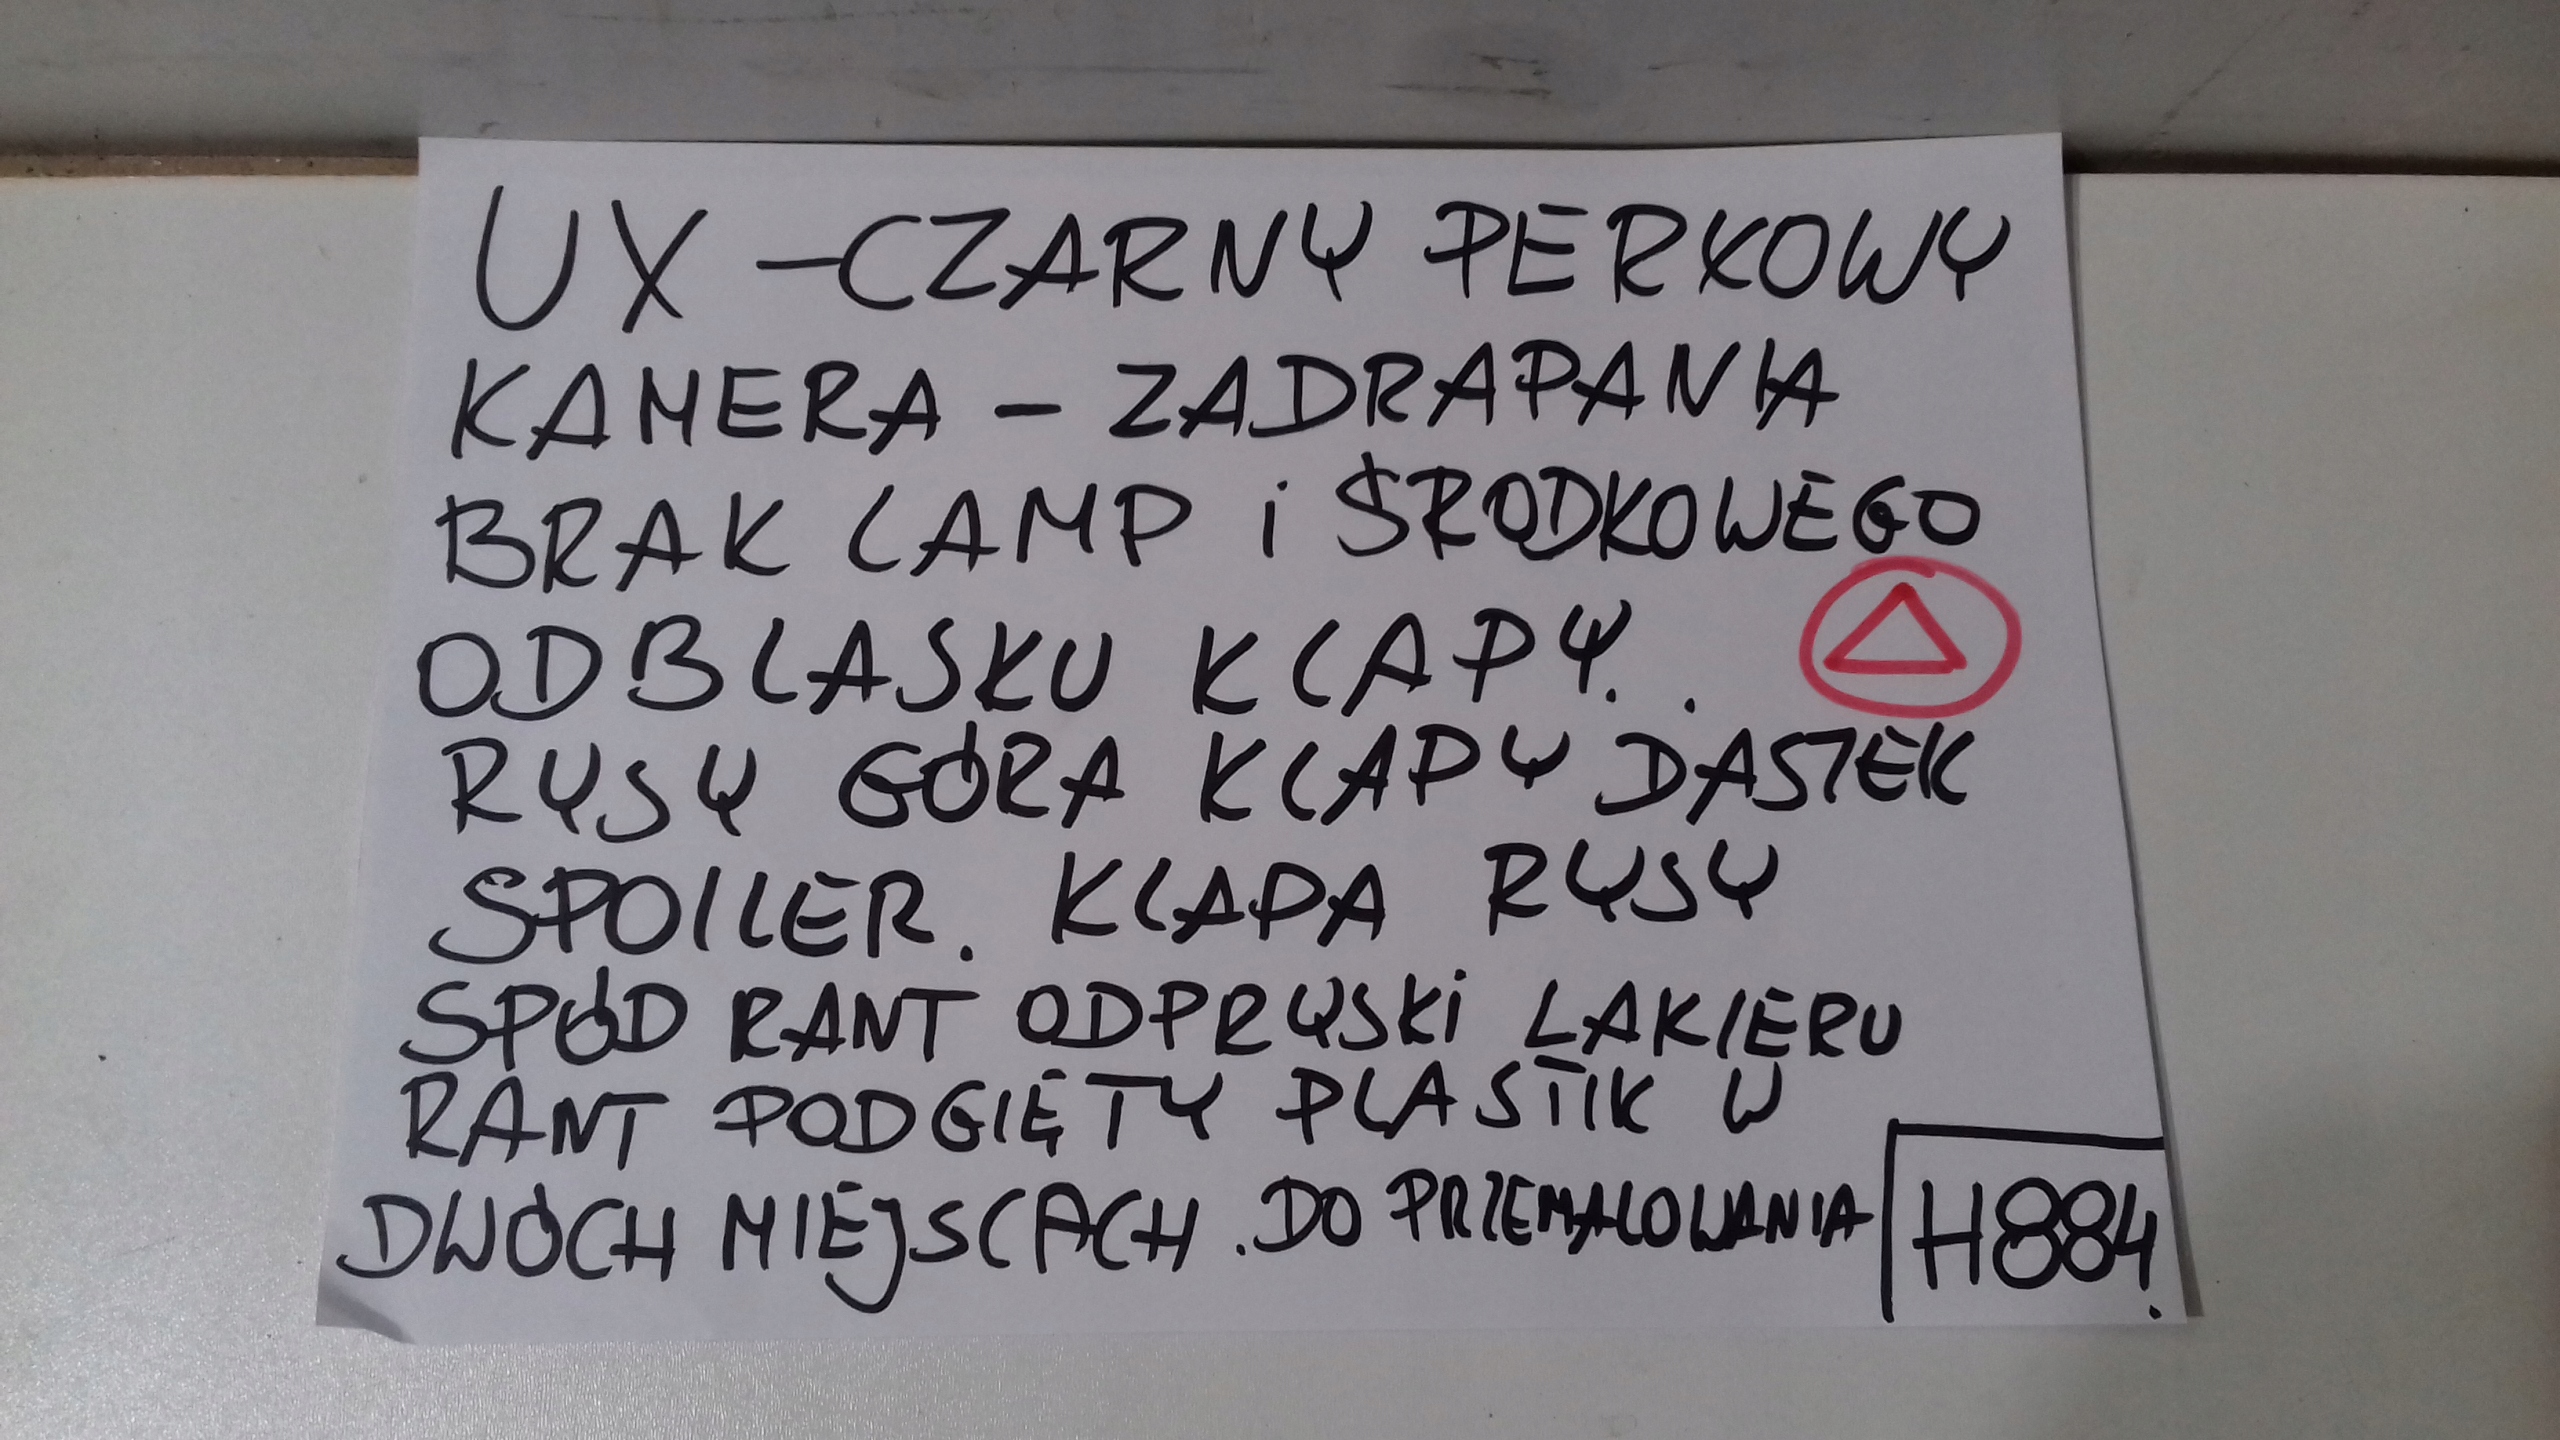 UX - CZARNY PERKOWY
KAMERA - ZADRAPANIA
BRAK LAMP i ŚRODKOWEGO
ODBLASKU KLAPY..
RYSY GÓRA KLAPY DASTEK
SPOILER. KLAPA RYSY
SPÓD RANT ODPRYSKi LAKIERU
RANT PODGIĘTY PLASTIK W
DWÓCH MIEJSCACH. DO PRZEMALOWANIA
H884.